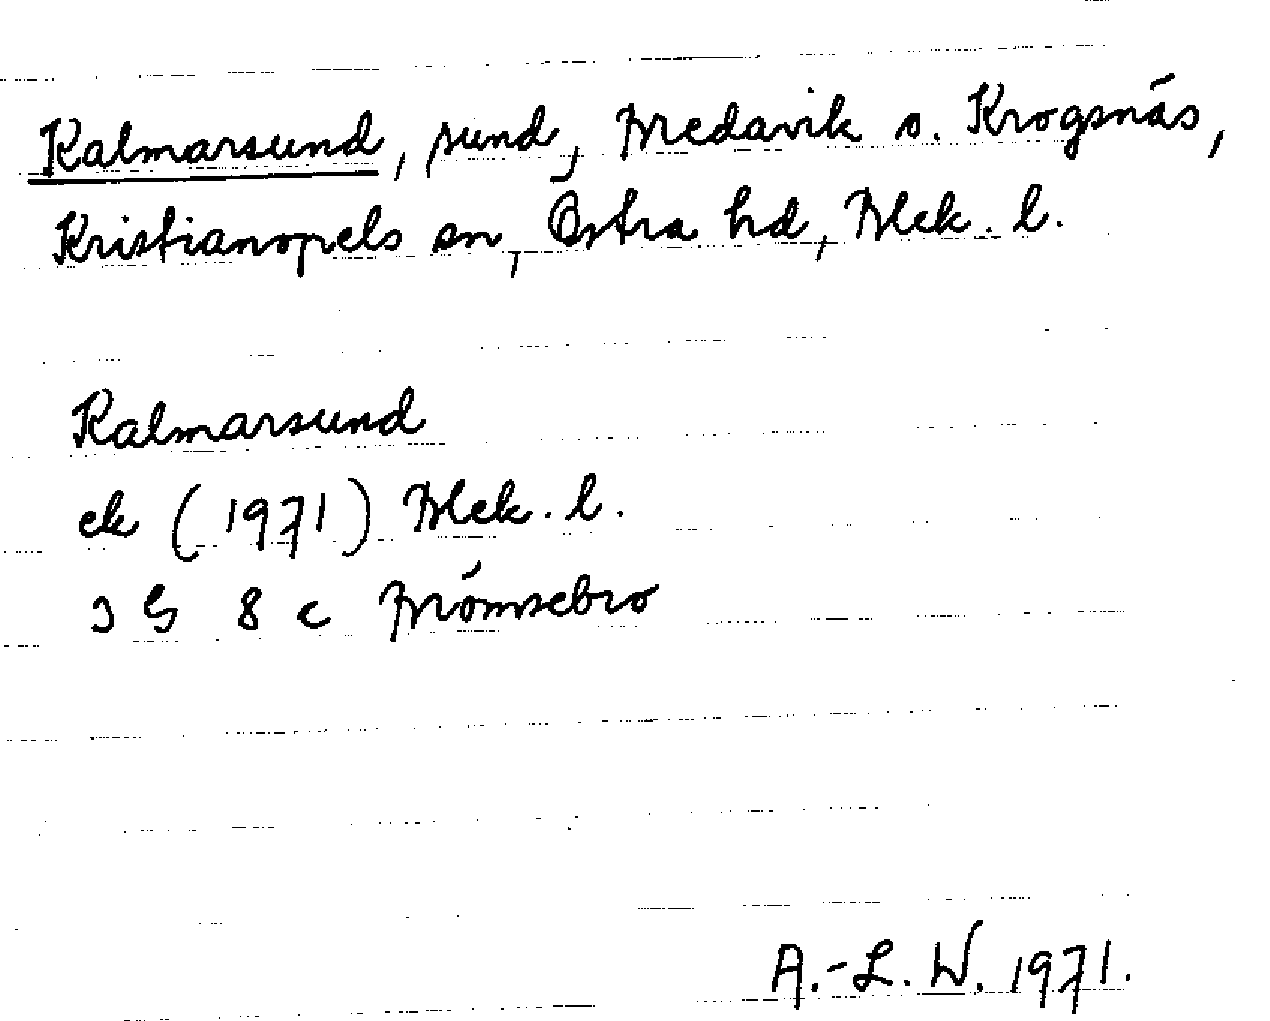 Kalmarsund, sund, Bredavik o. Krogsnäs,
Kristianopels sn, Östra hd, Blek. l.
Kalmarsund
ek (1971) Blek. l.
3 G 8 c Brömsebro
A.-L. W. 1971.